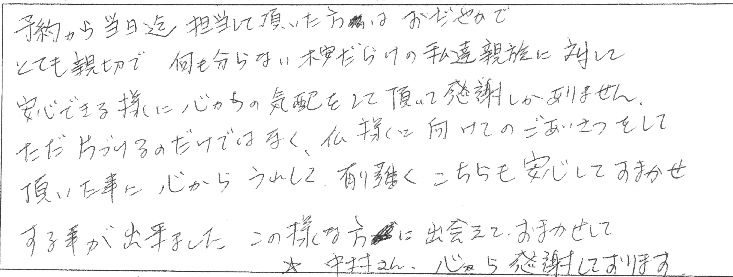 予約から当日迄 担当して頂いた方は おだやかで
とても親切で 何も分らない 不安だらけの私達親族に対して
安心できる様に 心からの気配をして頂いて感謝しかありません。
ただ片づけるのだけではなく、仏様に向けてのごあいさつをして
頂いた事に 心から うれしく 有り難く こちらも安心しておまかせ
する事が出来ました この様な方に出会えて おまかせして
☆ 中村さん、心から感謝しております